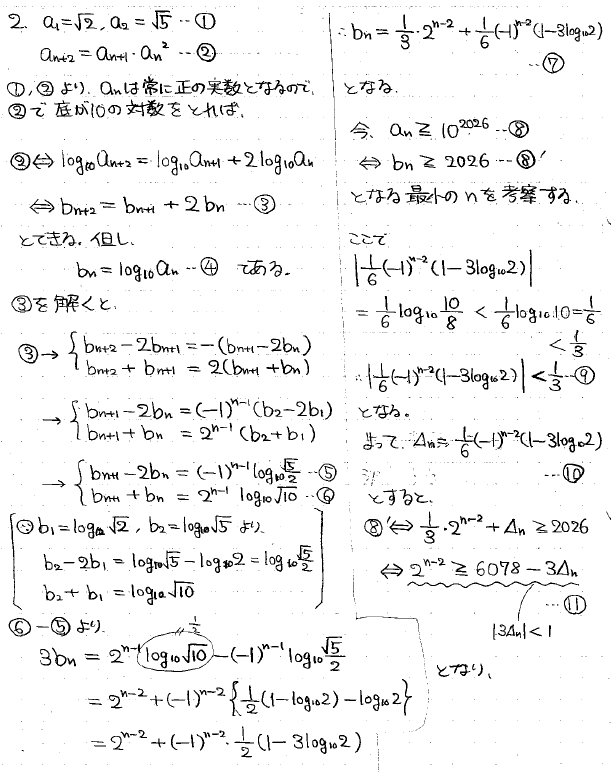 2. a₁=√2, a₂=√5 …①
aₙ₊₂=aₙ₊₁・aₙ² …②
①,②より、aₙは常に正の実数となるので、
②で底が10の対数をとれば、
②⇔ log₁₀aₙ₊₂=log₁₀aₙ₊₁+2log₁₀aₙ
⇔ bₙ₊₂=bₙ₊₁+2bₙ …③
とできる。但し、
bₙ=log₁₀aₙ …④ である。
③を解くと、
③→ { bₙ₊₂-2bₙ₊₁=-(bₙ₊₁-2bₙ)
bₙ₊₂+bₙ₊₁=2(bₙ₊₁+bₙ)
→ { bₙ₊₁-2bₙ=(-1)ⁿ⁻¹(b₂-2b₁)
bₙ₊₁+bₙ=2ⁿ⁻¹(b₂+b₁)
→ { bₙ₊₁-2bₙ=(-1)ⁿ⁻¹log₁₀√5/2 …⑤
bₙ₊₁+bₙ=2ⁿ⁻¹log₁₀√10 …⑥
[∵ b₁=log₁₀√2, b₂=log₁₀√5より
b₂-2b₁=log₁₀√5-log₁₀2=log₁₀√5/2
b₂+b₁=log₁₀√10]
⑥-⑤より、
3bₙ=2ⁿ⁻¹log₁₀√10-(-1)ⁿ⁻¹log₁₀√5/2
〃1/2
=2ⁿ⁻²+(-1)ⁿ⁻²{1/2(1-log₁₀2)-log₁₀2}
=2ⁿ⁻²+(-1)ⁿ⁻²・1/2(1-3log₁₀2)
∴bₙ=1/3・2ⁿ⁻²+1/6(-1)ⁿ⁻²(1-3log₁₀2)
…⑦
となる。
今、aₙ≧10²⁰²⁶ …⑧
⇔ bₙ≧2026 …⑧'
となる最小のnを考察する。
ここで
|1/6(-1)ⁿ⁻²(1-3log₁₀2)|
=1/6log₁₀10/8<1/6log₁₀10=1/6
<1/3
∴|1/6(-1)ⁿ⁻²(1-3log₁₀2)|<1/3 …⑨
となる。
よって、Δₙ=1/6(-1)ⁿ⁻²(1-3log₁₀2)
…⑩
とすると、
⑧'⇔1/3・2ⁿ⁻²+Δₙ≧2026
⇔2ⁿ⁻²≧6078-3Δₙ
…⑪
|3Δₙ|<1
となり、